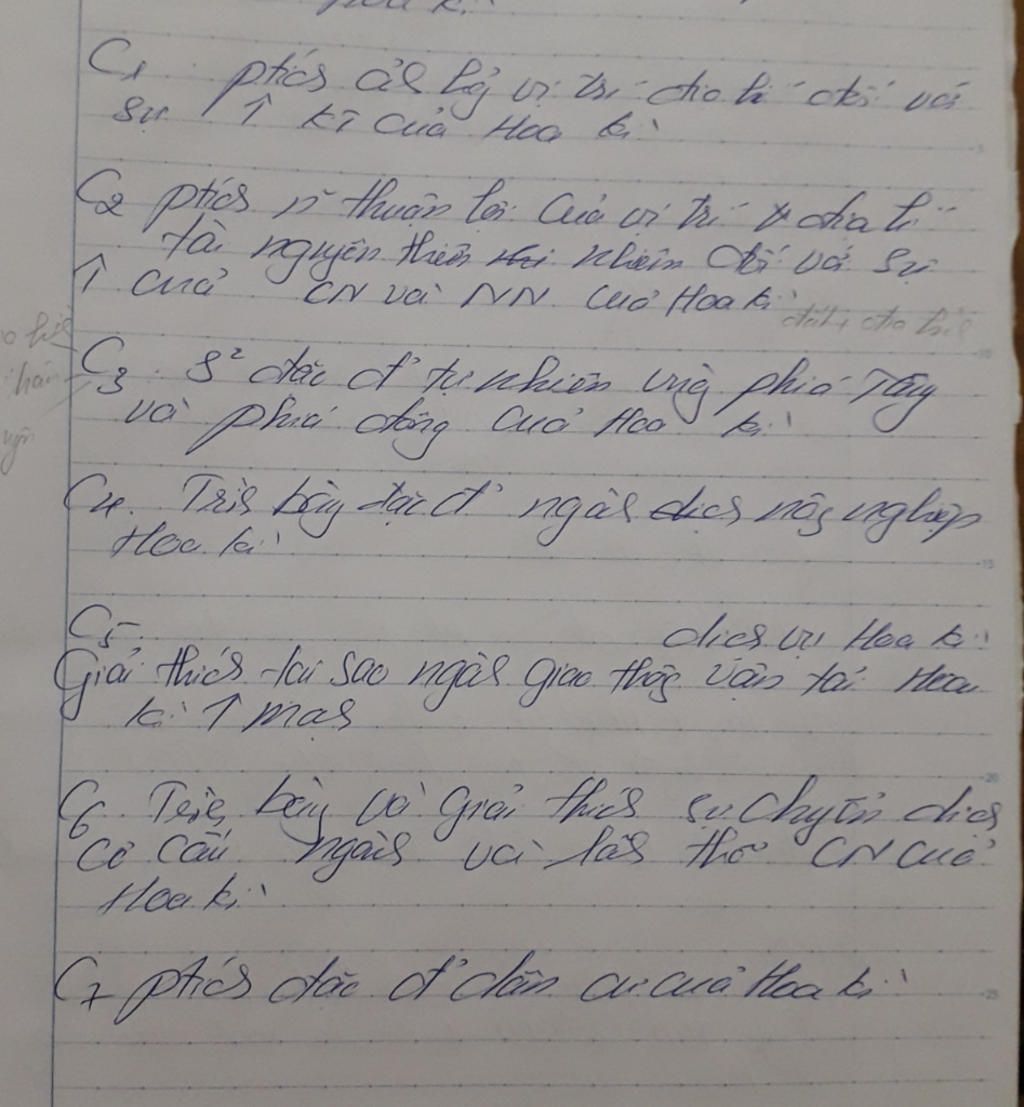 Hoa kì
C1 ptích ảh hg vị trí địa lí đối với
sự ↑ kT của Hoa kì
C2 ptích n~ thuận lợi của vị trí địa lí
tài nguyên thiên nhiên đối với sự
↑ của CN và NN của Hoa kì
C3. S² đặc đ' tự nhiên vùg phía Tây
và phía đông của Hoa kì
C4. Trìh bày đặc đ' ngàh nôg nghiệp
Hoa kì
C5 dịch vụ Hoa kì
Giải thích tại sao ngàh giao thôg vận tải Hoa
kì ↑ mạh
C6 Trìh bày và giải thích sự chuyển dịch
cơ cấu ngàh và lãh thổ CN của
Hoa kì
C7 ptích đặc đ' dân cư của Hoa kì